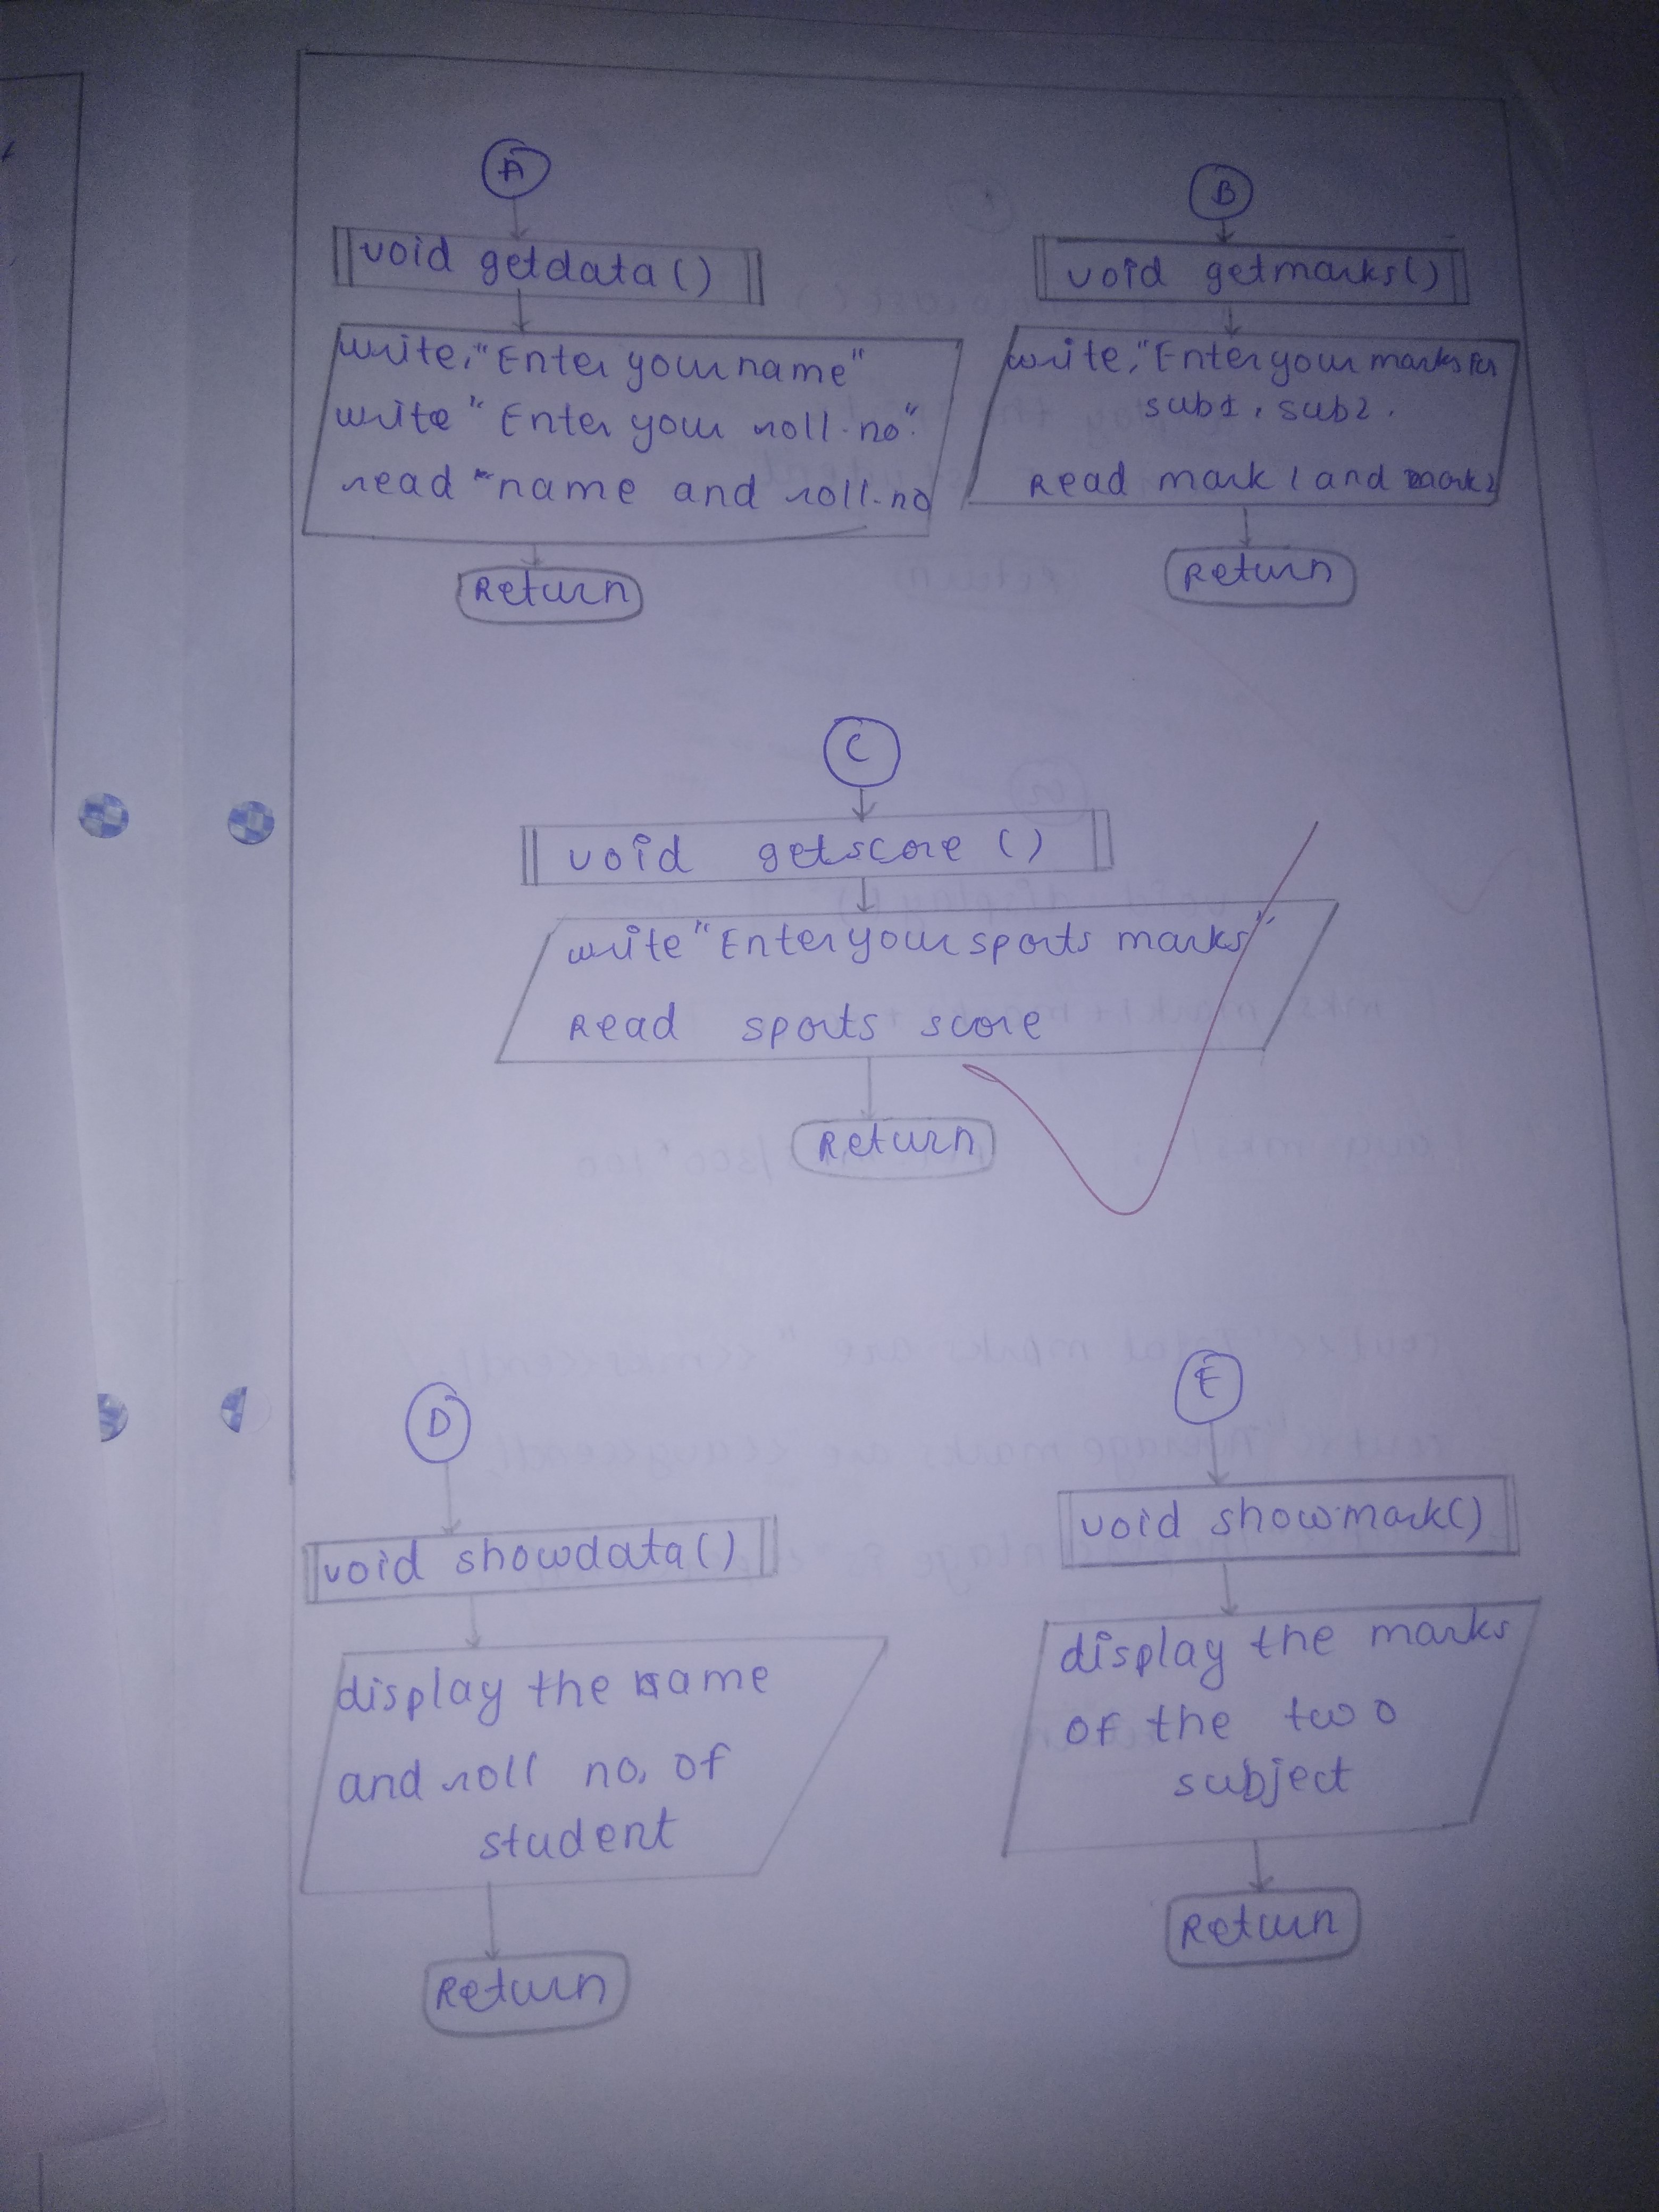 A
void getdata()
write, "Enter your name"
write "Enter your roll.no".
read name and roll.no
Return
B
void getmarks()
write, "Enter your marks for
sub1, sub2.
Read mark 1 and mark2
Return
C
void getscore ()
write "Enter your sports marks"
Read sports score
Return
D
void showdata()
display the name
and roll no. of
student
Return
E
void showmark()
display the marks
of the two
subject
Return